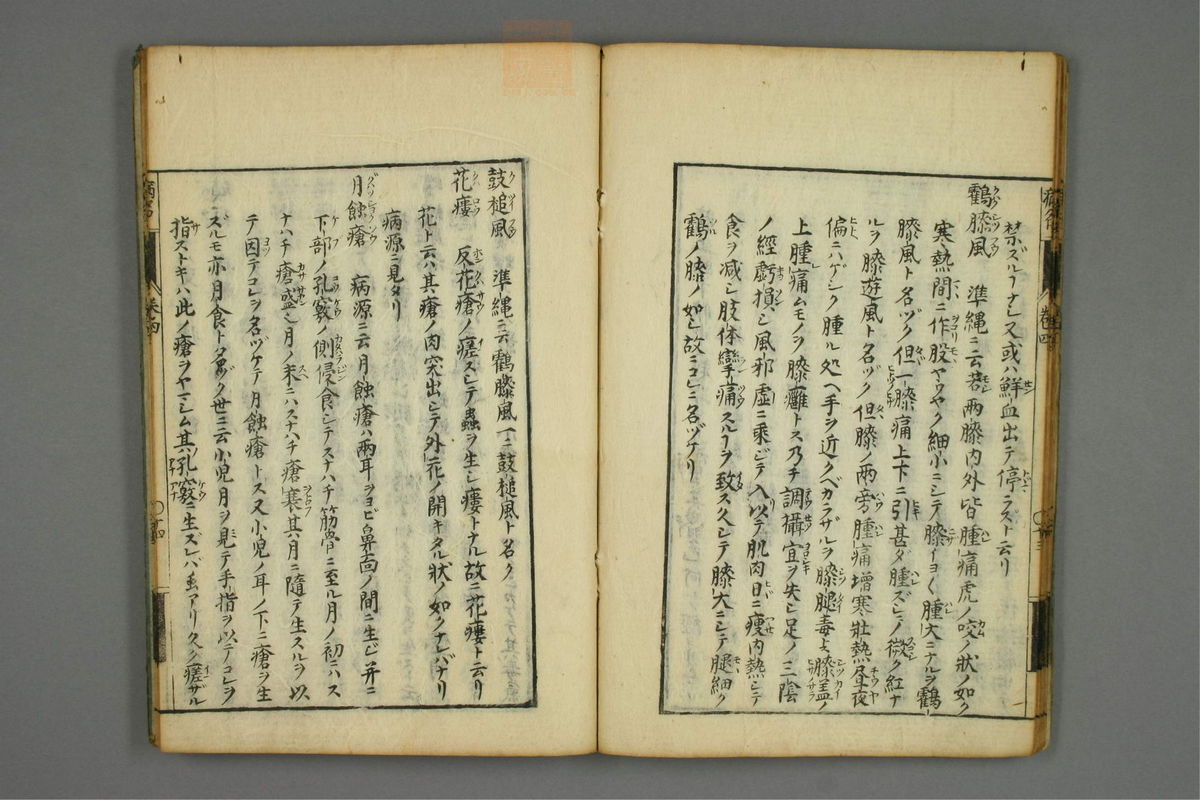 禁ズルフナシ又或ハ鮮血出テ停ラスト云リ
鶴膝風 準縄ニ云若両膝内外皆腫痛虎ノ咬ノ状ノ如ク
寒熱間ニ作股ヤウヤク細小ニシテ膝イヨ〱腫大ニナルヲ鶴
膝風ト名ヅク但一膝痛上下ニ引甚ダ腫ズシテ微ク紅ナ
ルヲ膝遊風ト名ヅク但膝ノ両旁腫痛増寒壮熱昼夜
偏ニハゲシク腫ル処ヘ手ヲ近クベカラザルヲ膝腿毒ト膝盖ノ
上腫痛ムモノヲ膝癰トス乃チ調攝宜ヲ失シ足ノ三陰
ノ經虧損シ風邪虚ニ乗ジテ入以テ肌肉日ニ痩内熱シテ
食ヲ減シ肢体攣痛スルフヲ致ス久シテ膝大ニシテ腿細ク
鶴ノ膝ノ如シ故ニコレニ名ヅケリ
鼓槌風 準縄ニ云鶴膝風一ニ鼓槌風ト名ク
花瘻 反花瘡ノ瘥スシテ蟲ヲ生シ瘻トナル故ニ花瘻ト云リ
花ト云ハ其瘡ノ肉突出シテ外花ノ開キタル状ノ如クナレバナリ
病源ニ見タリ
月蝕瘡 病源ニ云月蝕瘡ハ両耳ヲヨビ鼻面ノ間ニ生ジ并ニ
下部ノ孔竅ノ側侵食シテスナハチ筋骨ニ至ル月ノ初ニハス
ナハチ瘡盛シ月ノ末ニハスナハチ瘡衰其月ニ随テ生スルヲ以
テ因テコレヲ名ヅケテ月蝕瘡トス又小児ノ耳ノ下ニ瘡ヲ生
ズルモ亦月食ト名ヅク世ニ云小児月ヲ見テ手指ヲ以テコレヲ
指ストキハ此ノ瘡ヲヤマシム其孔竅ニ生ズレバ虫アリ久ク瘥ザル